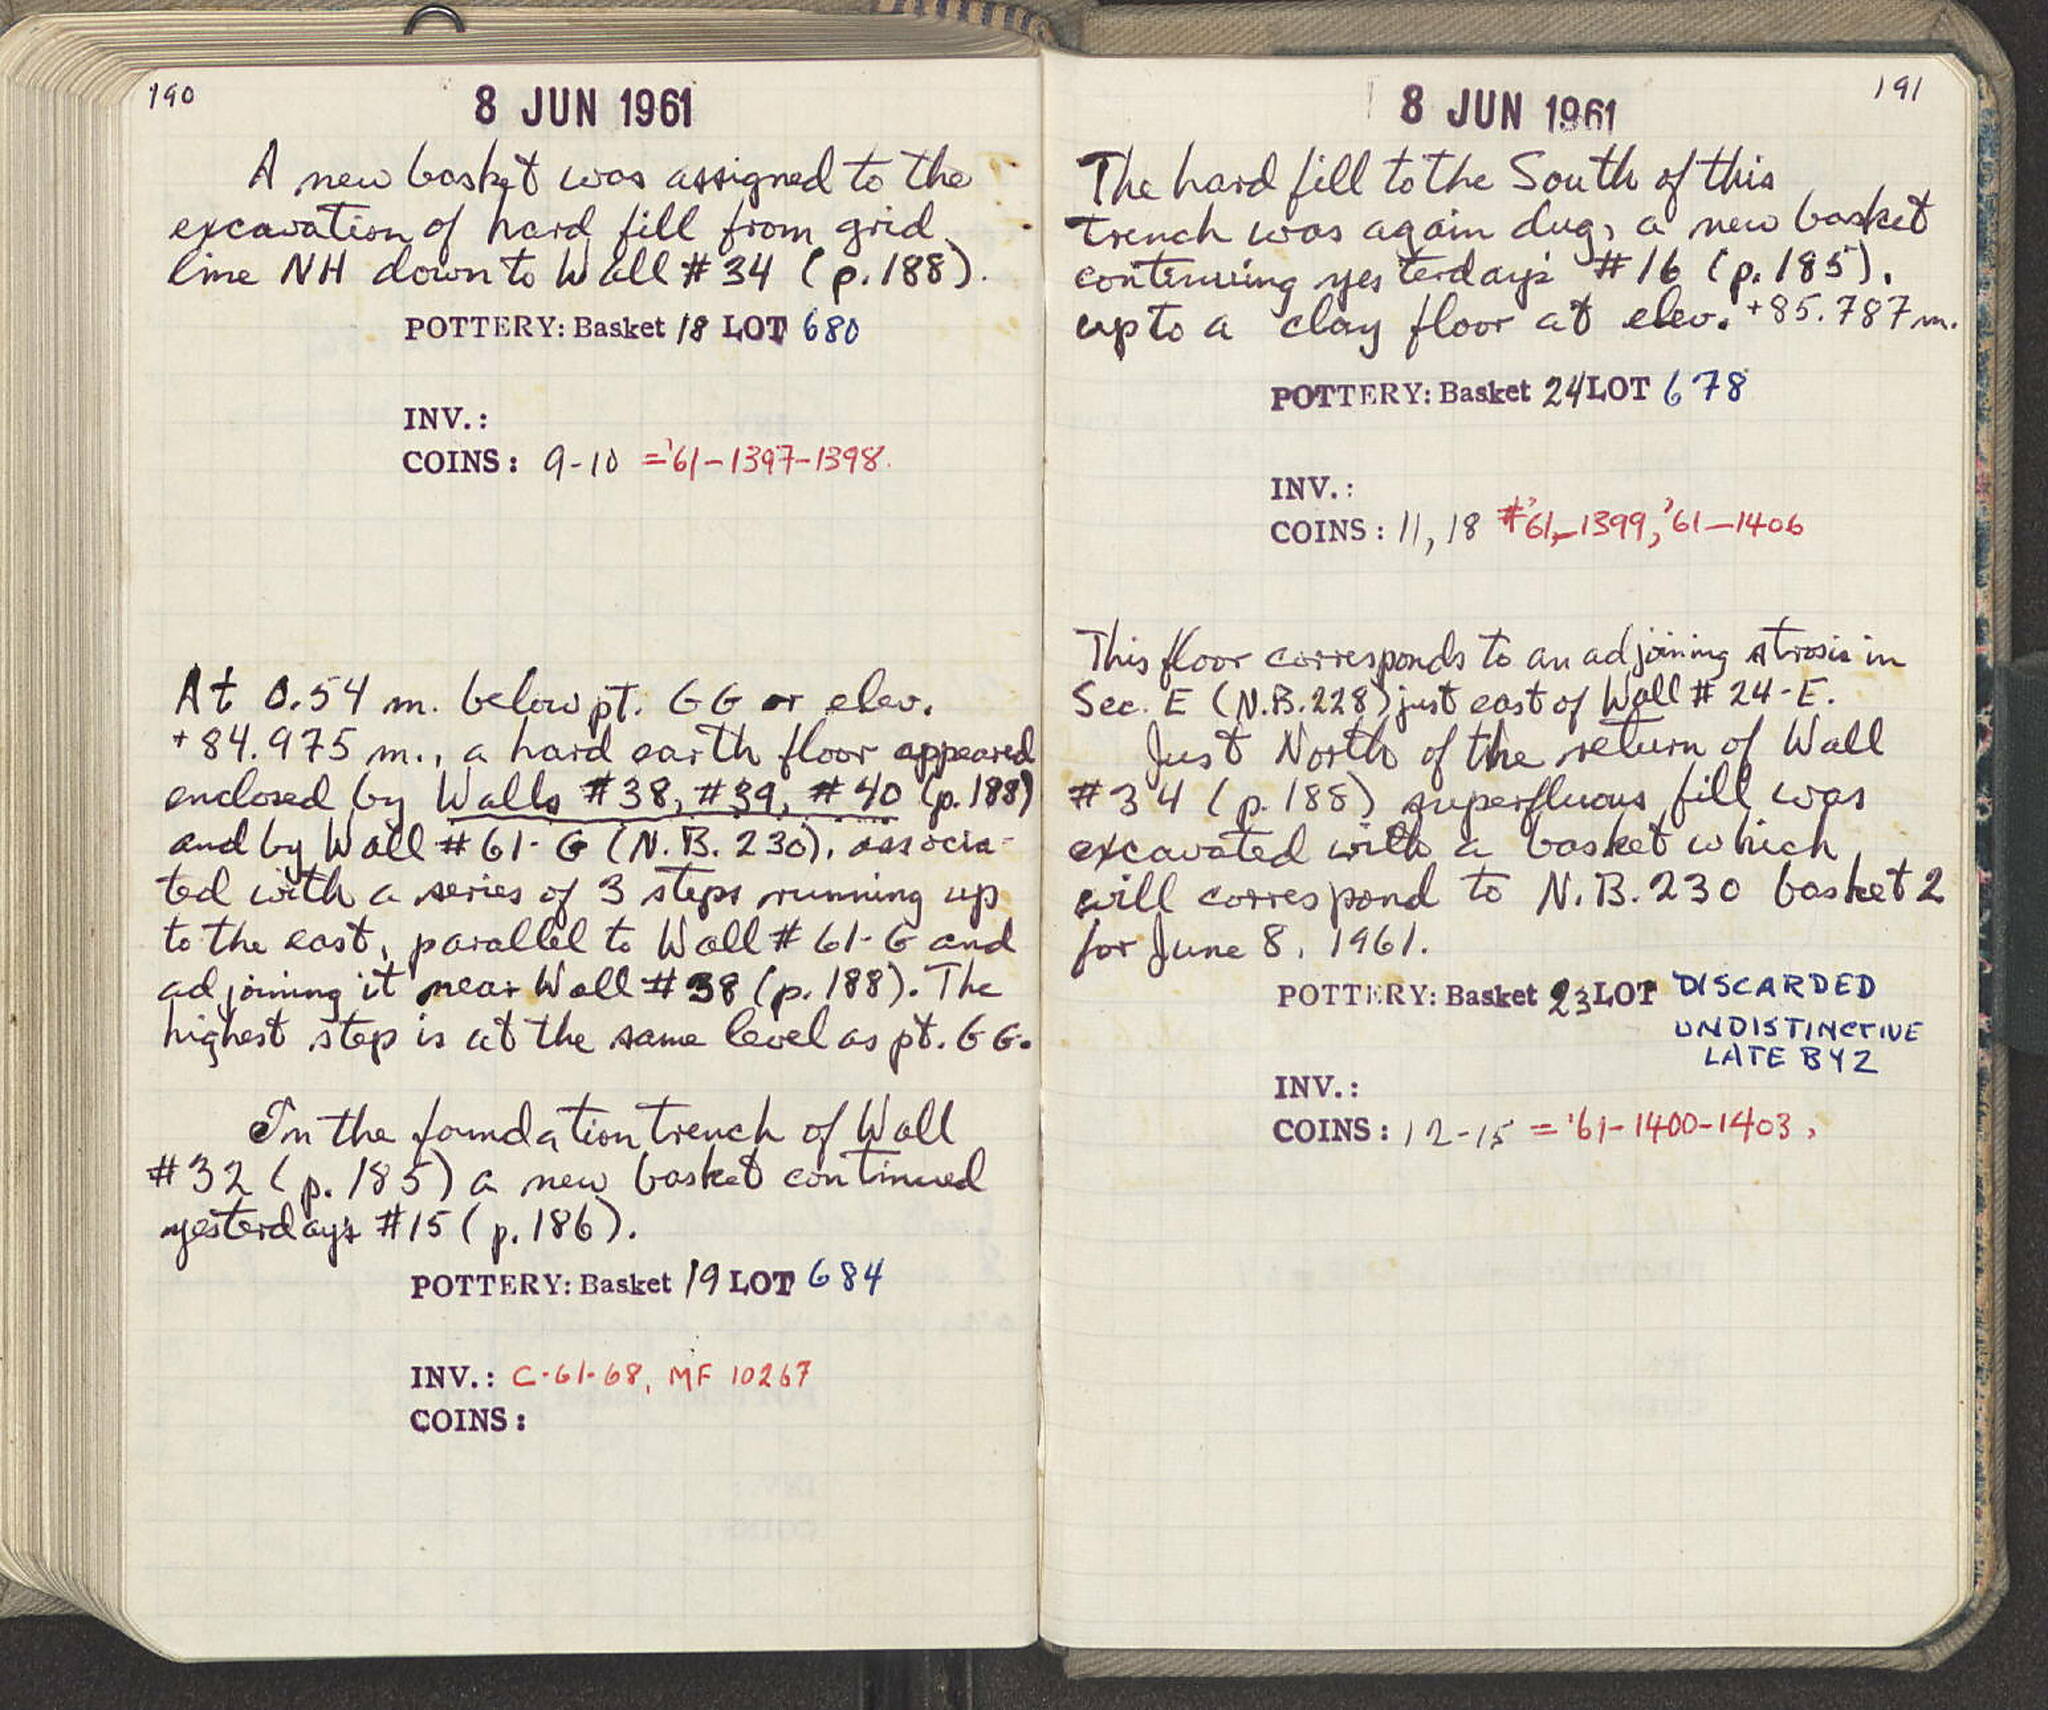 190
8 JUN 1961
A new basket was assigned to the
excavation of hard fill from grid
line NH down to Wall #34 (p.188).
POTTERY: Basket 18 LOT 680
INV.:
COINS: 9-10 ='61-1397-1398.
At 0.54 m. below pt. GG or elev.
+84.975 m., a hard earth floor appeared
enclosed by Walls #38, #39, #40 (p.188)
and by Wall #61-G (N.B. 230), associa-
ted with a series of 3 steps running up
to the east, parallel to Wall #61-G and
adjoining it near Wall #38 (p. 188). The
highest step is at the same level as pt. GG.
In the foundation trench of Wall
#32 (p. 185) a new basket continued
yesterday's #15 (p. 186).
POTTERY: Basket 19 LOT 684
INV.: C-61-68, MF 10267
COINS:
191
8 JUN 1961
The hard fill to the South of this
trench was again dug, a new basket
continuing yesterday's #16 (p.185).
up to a clay floor at elev. +85.787 m.
POTTERY: Basket 24 LOT 678
INV.:
COINS: 11, 18 #'61-1399, '61-1406
This floor corresponds to an adjoining strosis in
Sec. E (N.B.228) just east of Wall #24-E.
Just North of the return of Wall
#34 (p. 188) superfluous fill was
excavated with a basket which
will correspond to N.B. 230 basket 2
for June 8, 1961.
POTTERY: Basket 23 LOT DISCARDED
UNDISTINCTIVE
LATE BYZ
INV.:
COINS: 12-15 = '61-1400-1403,